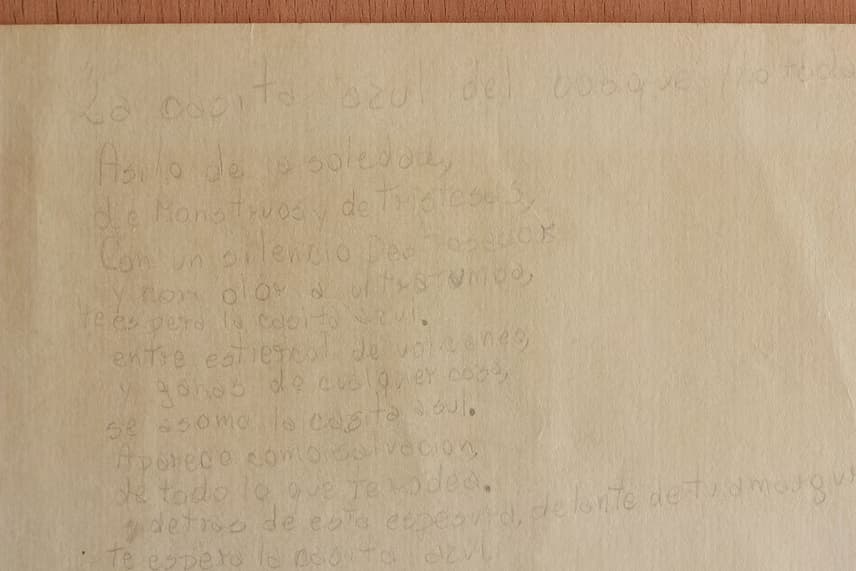 La casita azul del bosque
Asilo de la soledad,
de Monstruos y de Tristesas,
Con un silencio
y con olor a ultratumba,
te espera la casita azul.
entre estiercol de volcanes,
y ganas de cualquier cosa,
se asoma la casita azul.
Aparece como salvacion,
de todo lo que te rodea.
y detras de esta espesura, delante de tu amargu
te espera la casita azul